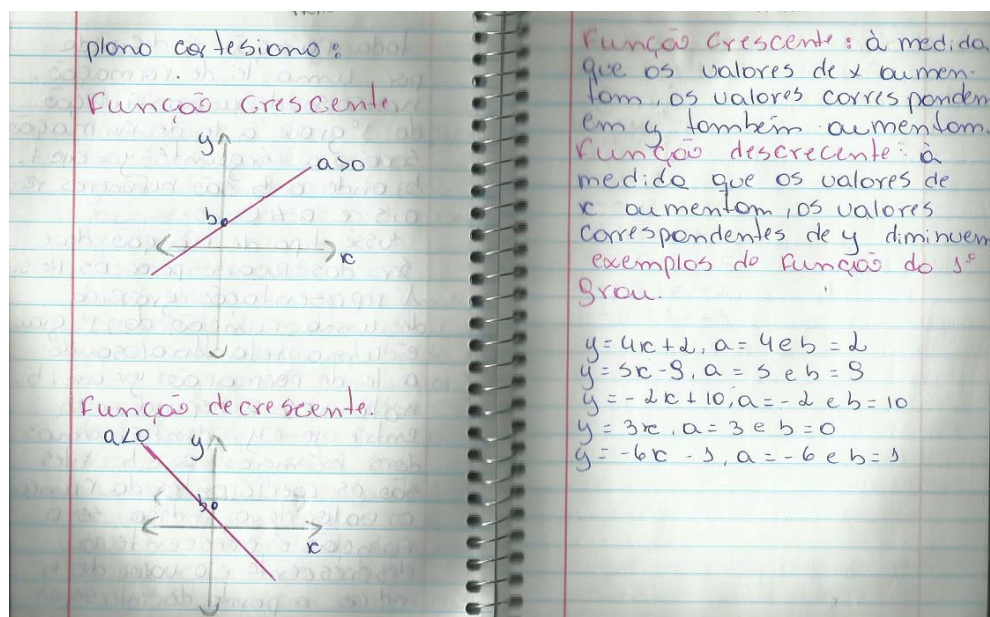 plano cartesiano:
Função Crescente.
y
a>0
b
x
Função decrescente.
a<0
y
b
x
Função Crescente: à medida
que os valores de x aumen-
tam, os valores correspondem
em y também aumentam.
Função descrecente: à
medida que os valores de
x aumentam, os valores
correspondentes de y diminuem
exemplos do Função do 1º
grau.
y = 4x + 2, a = 4 e b = 2
y = 5x - 9, a = 5 e b = 9
y = - 2x + 10, a = - 2 e b = 10
y = 3x, a = 3 e b = 0
y = -6x - 1, a = -6 e b = 1